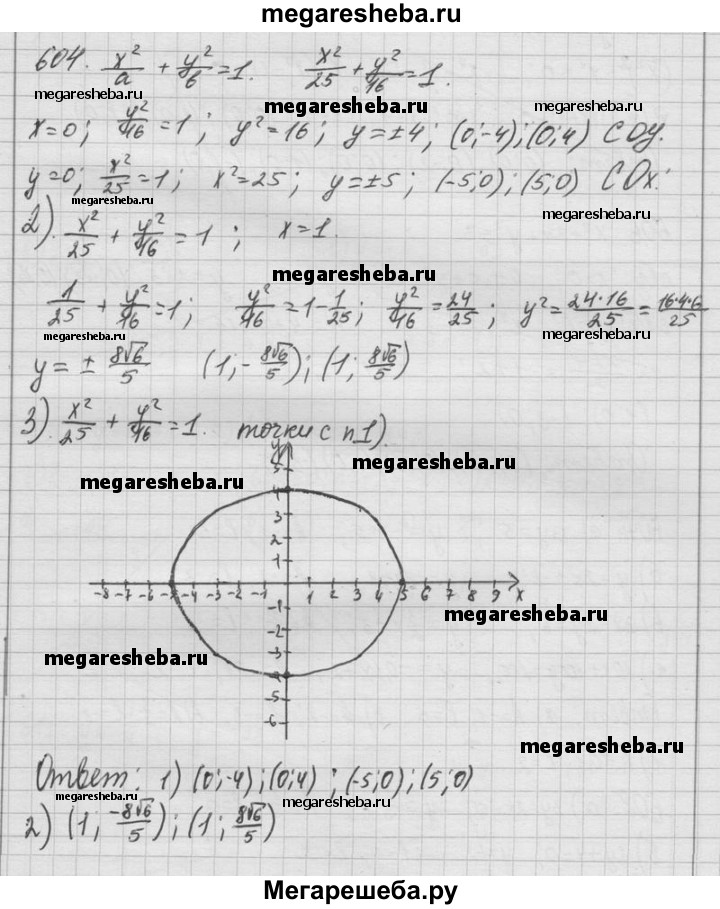 megaresheba.ru
604. x²/a + y²/b = 1. x²/25 + y²/16 = 1.
megaresheba.ru megaresheba.ru megaresheba.ru
x=0; y²/16 = 1; y²=16; y=±4; (0;-4);(0;4) С ОУ.
y=0; x²/25 = 1; x²=25; y=±5; (-5;0); (5;0) С Ох.
megaresheba.ru megaresheba.ru
2). x²/25 + y²/16 = 1; x=1.
megaresheba.ru
1/25 + y²/16 = 1; y²/16 = 1-1/25; y²/16 = 24/25; y² = 24·16/25 = 16·4·6/25
megaresheba.ru megaresheba.ru
y = ± 8√6/5 (1;-8√6/5); (1; 8√6/5)
3). x²/25 + y²/16 = 1. точки с п1).
megaresheba.ru
megaresheba.ru
y
5
4
3
2
1
-8 -7 -6 -5 -4 -3 -2 -1 1 2 3 4 5 6 7 8 9 x
-1
-2
-3
-4
-5
-6
megaresheba.ru
megaresheba.ru
megaresheba.ru
Ответ: 1) (0;-4);(0;4); (-5;0);(5;0)
megaresheba.ru megaresheba.ru
2) (1; -8√6/5); (1; 8√6/5)
Мегарешеба.ру